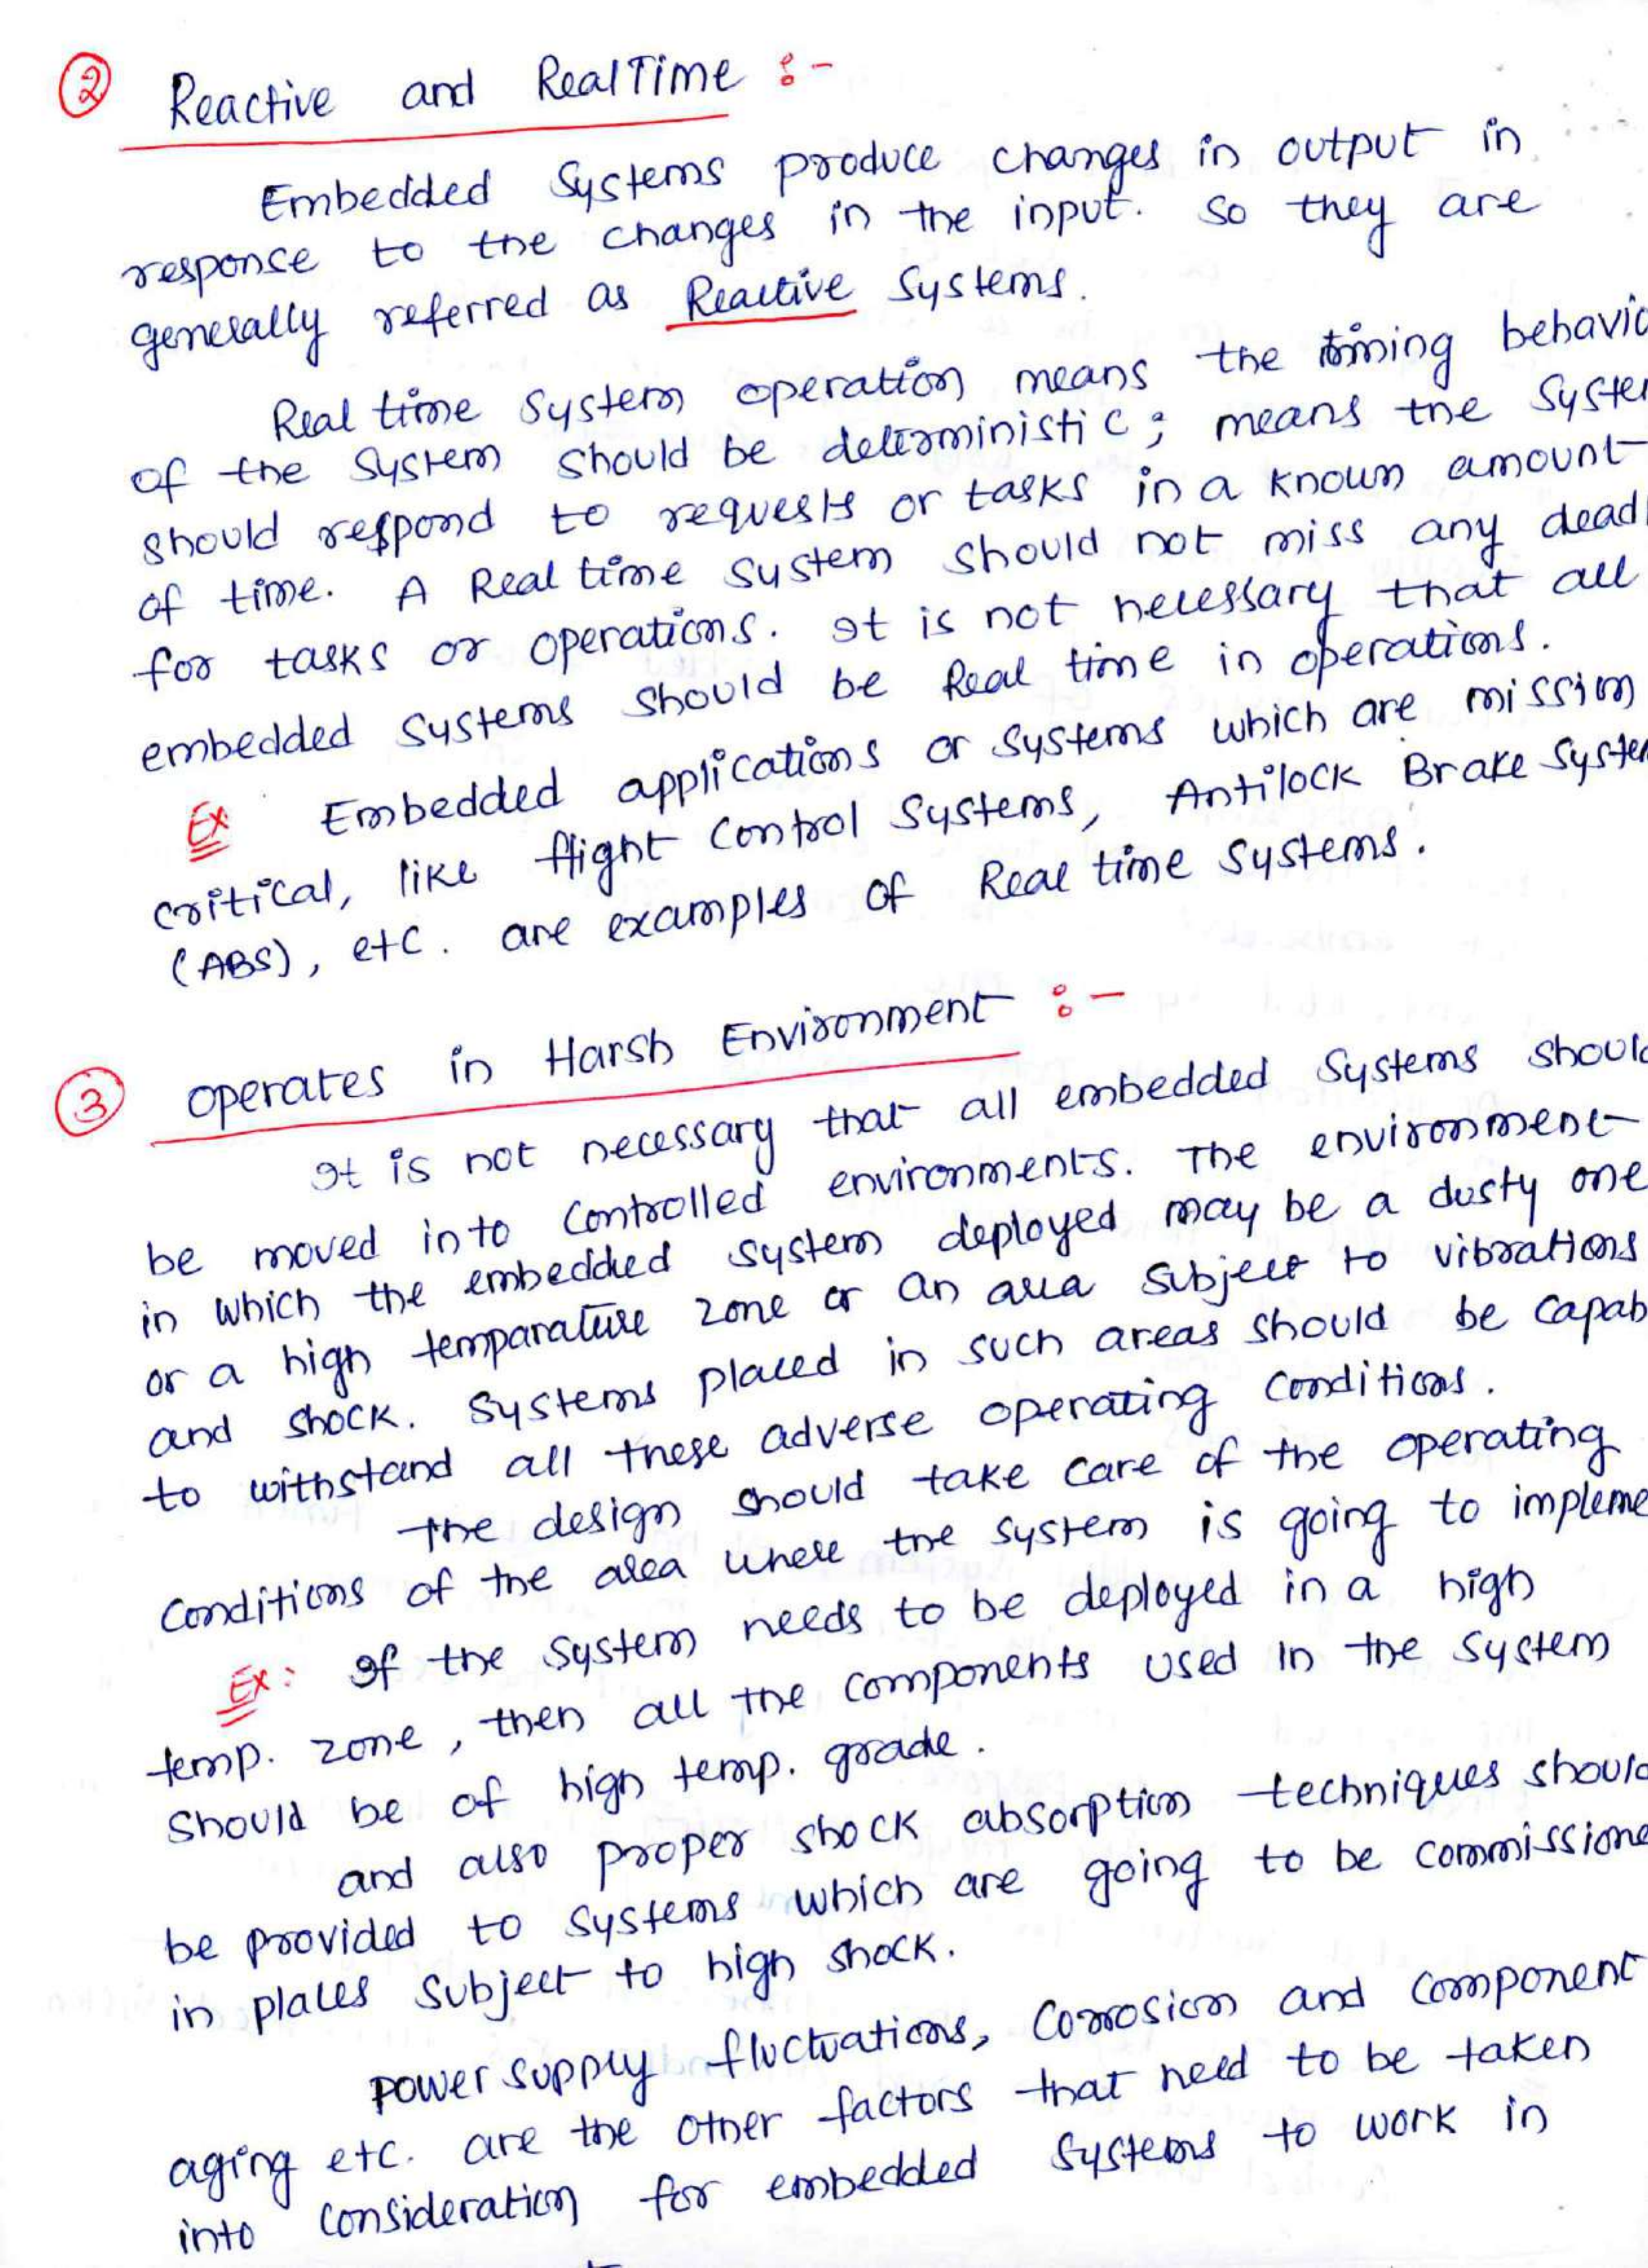 ② Reactive and RealTime :-
Embedded Systems produce changes in output in
response to the changes in the input. So they are
generally referred as Reactive Systems.
Real time System operation means the timing behavio
of the System should be deterministic; means the Syste
should respond to requests or tasks in a known amount
of time. A Real time system should not miss any dead
for tasks or operations. It is not necessary that all
embedded Systems should be Real time in operations.
Ex Embedded applications or Systems which are mission
critical, like flight Control Systems, Antilock Brake Syste
(ABS), etc. are examples of Real time Systems.
③ operates in Harsh Environment :-
It is not necessary that all embedded Systems shoul
be moved into Controlled environments. The environment
in which the embedded system deployed may be a dusty one
or a high temparature zone or an area Subject to vibrations
and shock. Systems placed in such areas should be capab
to withstand all these adverse operating Conditions.
The design should take care of the operating
Conditions of the area where the system is going to impleme
Ex: If the System needs to be deployed in a high
temp. zone, then all the components used in the System
Should be of high temp. grade.
and also proper shock absorption techniques should
be provided to Systems which are going to be commissione
in places Subject to high shock.
power supply fluctuations, Corrosion and Component
aging etc. are the other factors that need to be taken
into consideration for embedded Systems to work in